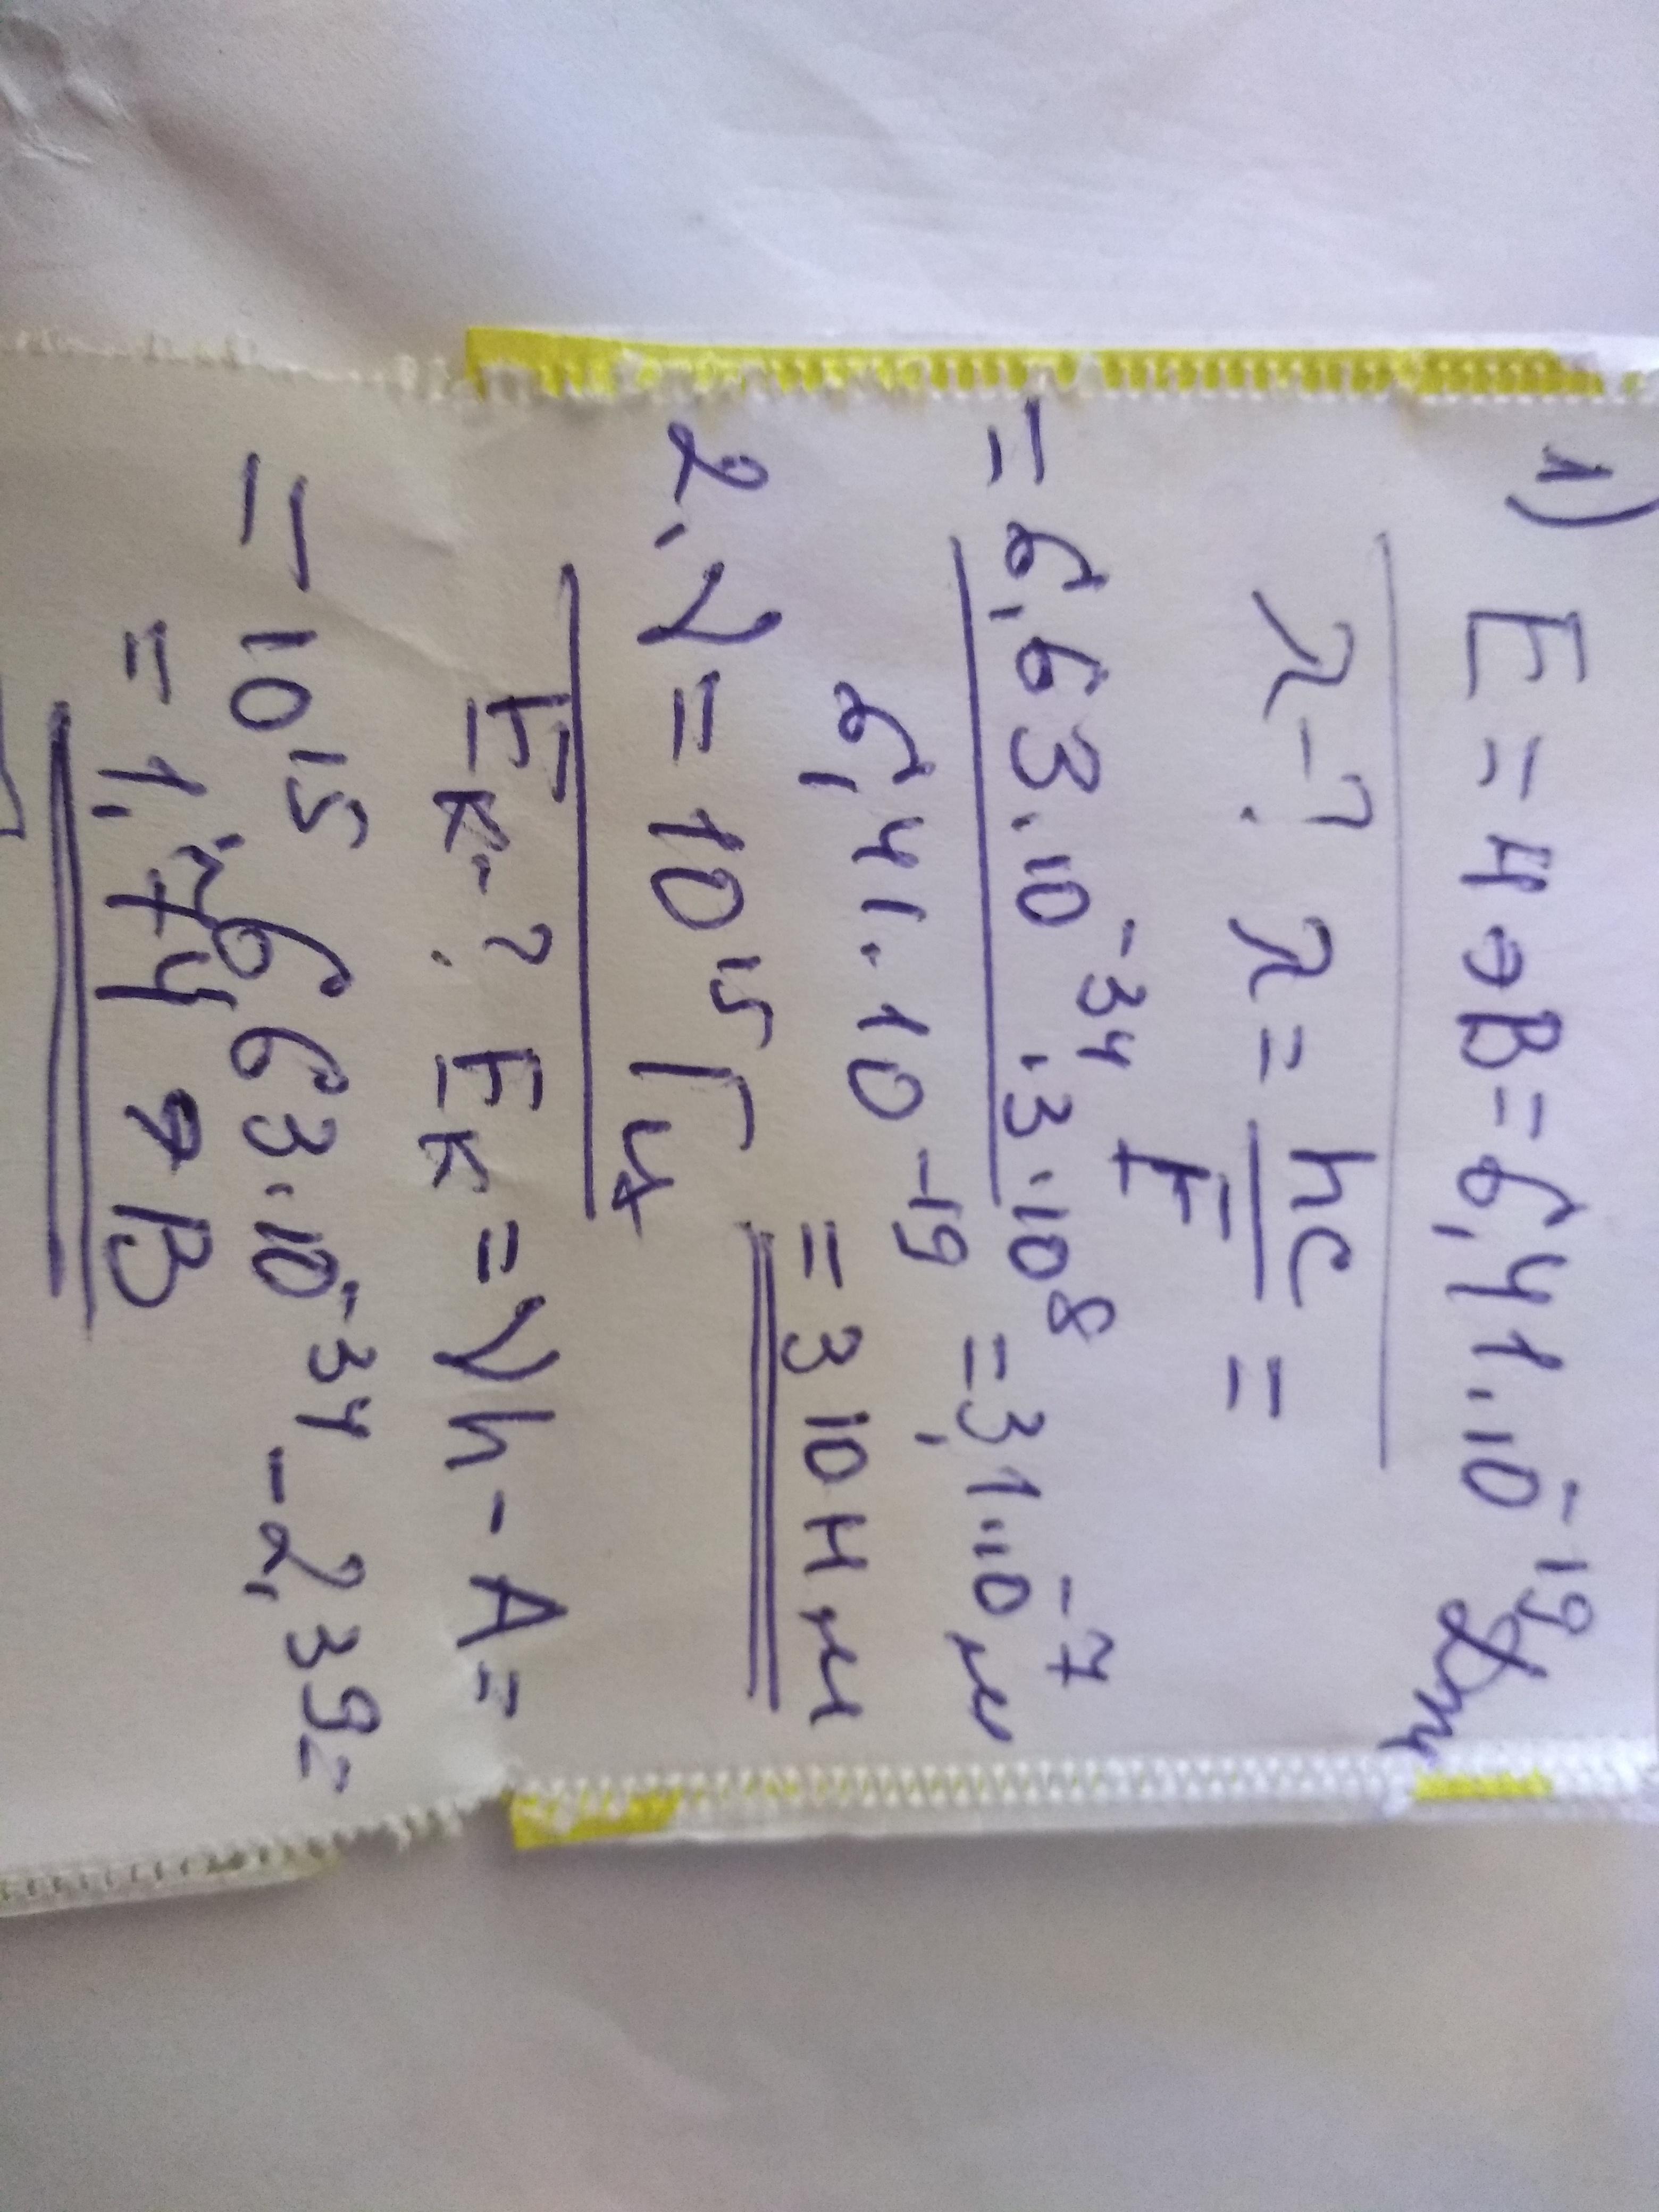 1) E = 4 эВ = 6,41·10⁻¹⁹ Дж
λ - ? λ = hc/E =
= 6,63·10⁻³⁴·3·10⁸ / 6,41·10⁻¹⁹ = 3,1·10⁻⁷ м
= 310 нм
2. ν = 10¹⁵ Гц
Eк - ? Eк = νh - A =
= 10¹⁵·6,63·10⁻³⁴ - 2,39 =
= 1,74 эВ